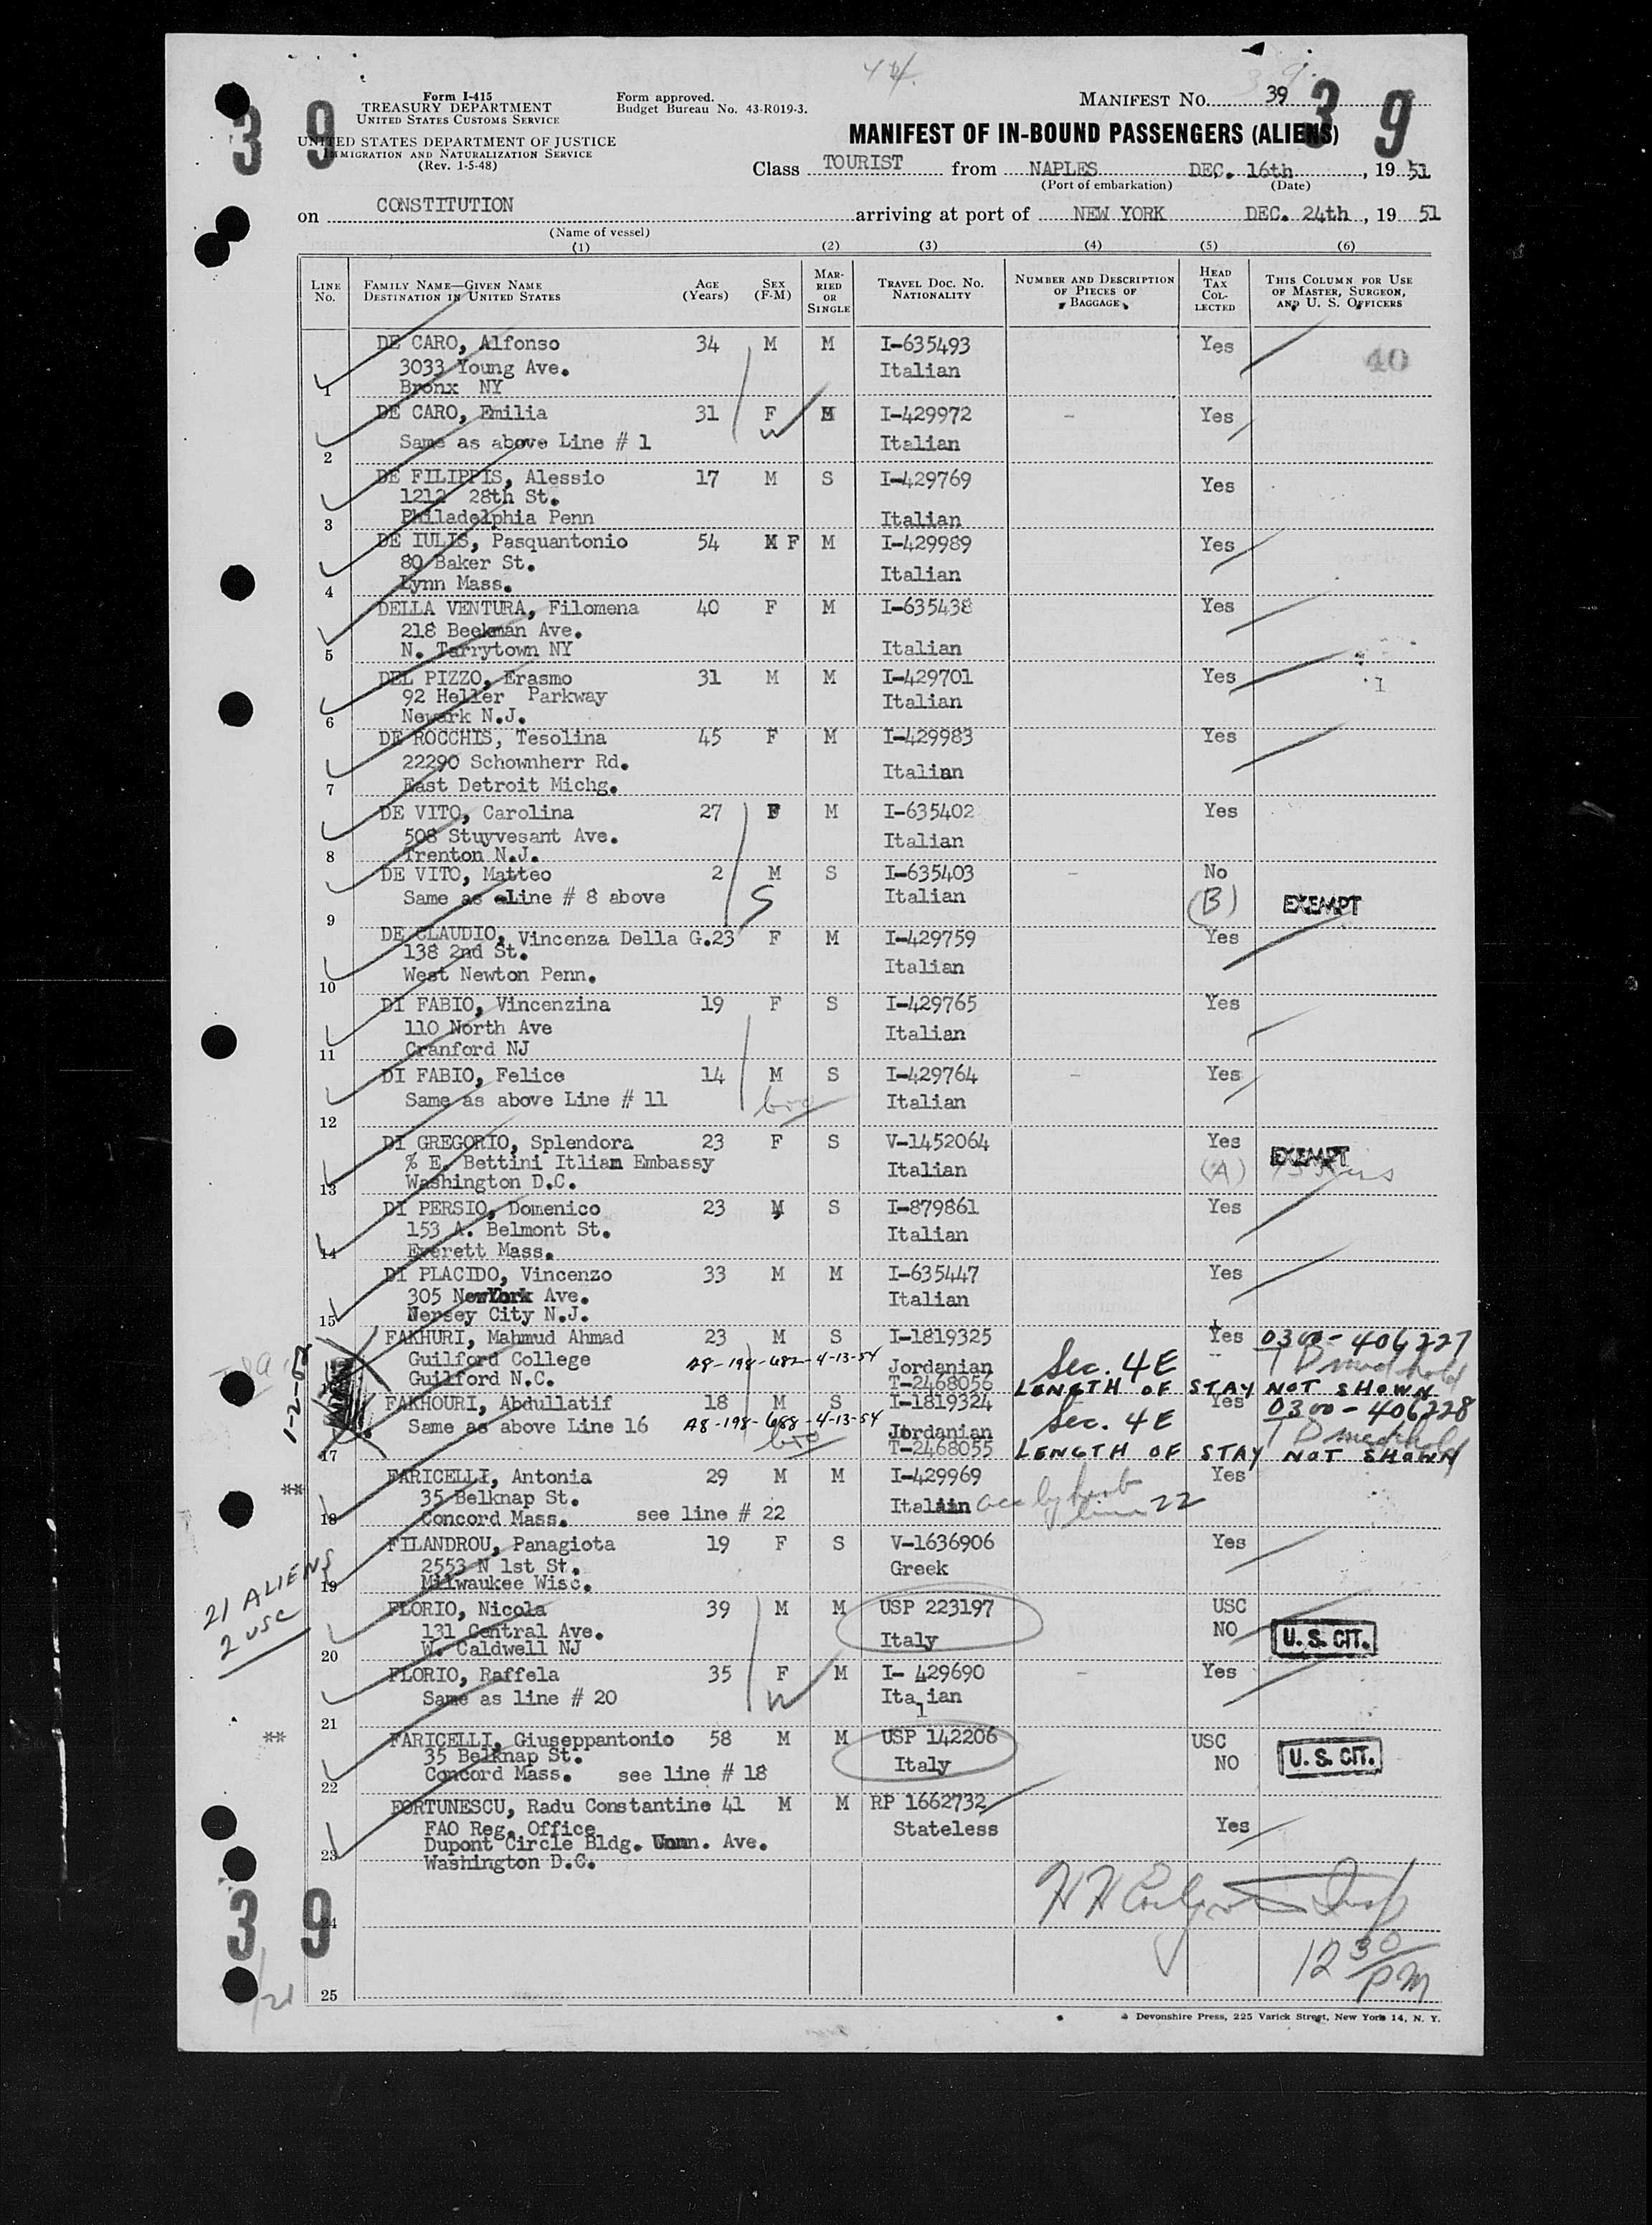 44.
39
39
Form I-415
TREASURY DEPARTMENT
UNITED STATES CUSTOMS SERVICE
UNITED STATES DEPARTMENT OF JUSTICE
IMMIGRATION AND NATURALIZATION SERVICE
(Rev. 1-5-48)
Form approved.
Budget Bureau No. 43-R019-3.
MANIFEST NO. 39
MANIFEST OF IN-BOUND PASSENGERS (ALIENS)
Class TOURIST from NAPLES DEC. 16th, 19 51
(Port of embarkation) (Date)
on CONSTITUTION arriving at port of NEW YORK DEC. 24th, 19 51
(Name of vessel)
(1) (2) (3) (4) (5) (6)
LINE NO. FAMILY NAME—GIVEN NAME DESTINATION IN UNITED STATES AGE (Years) SEX (F-M) MARRIED OR SINGLE TRAVEL DOC. NO. NATIONALITY NUMBER AND DESCRIPTION OF PIECES OF BAGGAGE HEAD TAX COLLECTED THIS COLUMN FOR USE OF MASTER, SURGEON, AND U. S. OFFICERS
DE CARO, Alfonso 34 M M I-635493 Yes 40
3033 Young Ave. Italian
1 Bronx NY
DE CARO, Emilia 31 F M I-429972 - Yes
W
Same as above Line # 1 Italian
2
DE FILIPPIS, Alessio 17 M S I-429769 Yes
1212 28th St.
3 Philadelphia Penn Italian
DE IULIS, Pasquantonio 54 M F M I-429989 Yes
80 Baker St. Italian
4 Lynn Mass.
DELLA VENTURA, Filomena 40 F M I-635438 Yes
218 Beekman Ave.
5 N. Tarrytown NY Italian
DEL PIZZO, Erasmo 31 M M I-429701 Yes
92 Heller Parkway Italian
6 Newark N.J.
DE ROCCHIS, Tesolina 45 F M I-429983 Yes
22290 Schownherr Rd. Italian
7 East Detroit Michg.
DE VITO, Carolina 27 F M I-635402 Yes
508 Stuyvesant Ave. Italian
8 Trenton N.J.
DE VITO, Matteo 2 M S I-635403 - No
Same as aLine # 8 above S Italian (B) EXEMPT
9
DE CLAUDIO, Vincenza Della G.23 F M I-429759 Yes
138 2nd St. Italian
10 West Newton Penn.
DI FABIO, Vincenzina 19 F S I-429765 Yes
110 North Ave Italian
11 Cranford NJ
DI FABIO, Felice 14 M S I-429764 - Yes
Same as above Line # 11 bro Italian
12
DI GREGORIO, Splendora 23 F S V-1452064 Yes EXEMPT
% E. Bettini Itlian Embassy Italian (A)
13 Washington D.C.
DI PERSIO, Domenico 23 M S I-879861 Yes
153 A. Belmont St. Italian
14 Everett Mass.
DI PLACIDO, Vincenzo 33 M M I-635447 Yes
305 NewYork Ave. Italian
15 Nersey City N.J.
FAKHURI, Mahmud Ahmad 23 M S I-1819325 Yes 0300-406227
Guilford College A8-198-682-4-13-54 Jordanian Sec. 4E
16 Guilford N.C. T-2468056 LENGTH OF STAY NOT SHOWN
1-2-52
FAKHOURI, Abdullatif 18 M S I-1819324 Yes 0300-406228
Same as above Line 16 A8-198-688-4-13-54 bro Jordanian Sec. 4E
17 T-2468055 LENGTH OF STAY NOT SHOWN
** FARICELLI, Antonia 29 M M I-429969 Yes
35 Belknap St. Italian acc by husb line 22
18 Concord Mass. see line # 22
FILANDROU, Panagiota 19 F S V-1636906 Yes
2553 N 1st St. Greek
19 Milwaukee Wisc.
21 ALIENS
2 USC
FLORIO, Nicola 39 M M USP 223197 USC
131 Central Ave. Italy NO U. S. CIT.
20 W. Caldwell NJ
FLORIO, Raffela 35 F M I- 429690 - Yes
Same as line # 20 W Italian
21
** FARICELLI, Giuseppantonio 58 M M USP 142206 USC
35 Belknap St. Italy NO U. S. CIT.
22 Concord Mass. see line # 18
FORTUNESCU, Radu Constantine 41 M M RP 1662732
FAO Reg. Office Stateless Yes
23 Dupont Circle Bldg. Conn. Ave.
Washington D.C.
24
12 30 PM
25
39
Devonshire Press, 225 Varick Street, New York 14, N. Y.